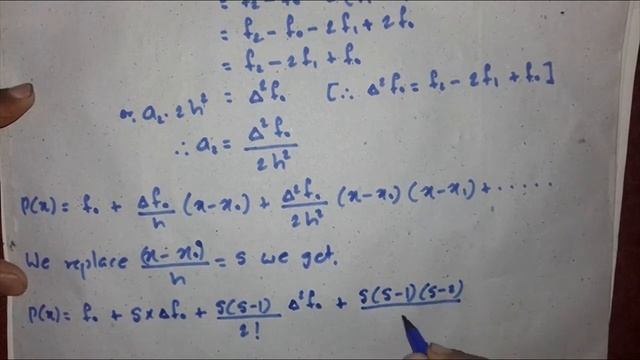 = f₂ - f₀ - 2f₁ + 2f₀
= f₂ - 2f₁ + f₀
or, a₂. 2h² = Δ²f₀ [∵ Δ²f₀ = f₂ - 2f₁ + f₀]
∴ a₂ = Δ²f₀ / 2h²
P(x) = f₀ + Δf₀/h (x-x₀) + Δ²f₀/2h² (x-x₀) (x-x₁) + ......
We replace (x-x₀)/h = s we get.
P(x) = f₀ + s×Δf₀ + s(s-1)/2! Δ²f₀ + s(s-1)(s-2)